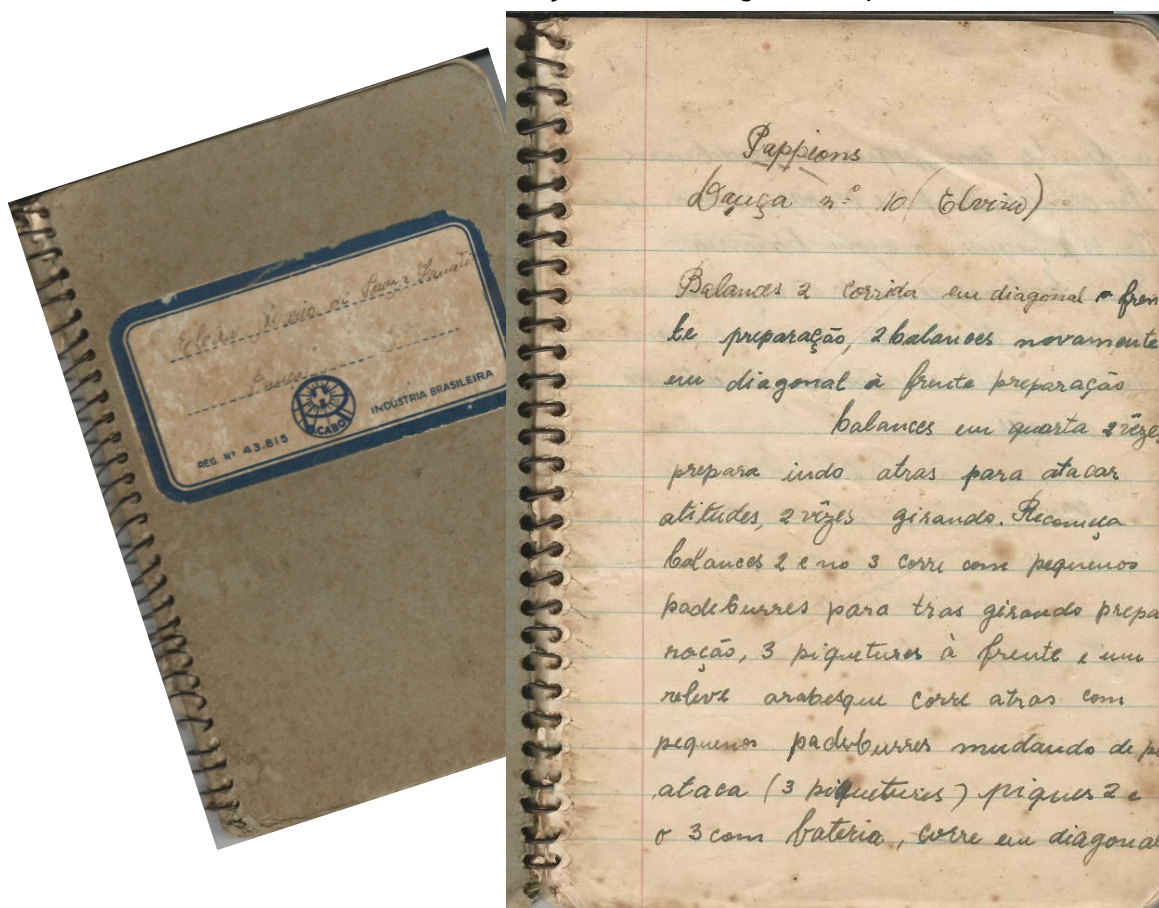 de Souza
Dança
INDÚSTRIA BRASILEIRA
REG. Nº 43.815
Pappions
Dança nº 10 (Elvira)
Balances 2 corrida em diagonal a fren
te preparação, 2 balances novamente
em diagonal à frente preparação
balances em quarta 2 vêzes
prepara indo atras para atacar
atitudes, 2 vêzes girando. Recomeça
balances 2 e no 3 corre com pequenos
padeburres para tras girando prepa
ração, 3 piquetures à frente e um
relevé arabesque corre atras com
pequenos padeburres mudando de pé
ataca (3 piquetures) piques 2 e
o 3 com bateria, corre em diagonal